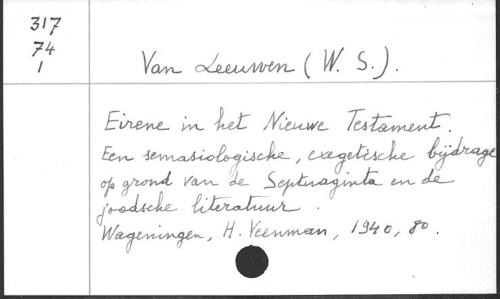 317
74
1
Van Leeuwen (W. S.).
Eirene in het Nieuwe Testament.
Een semasiologische, exegetische bijdrage
op grond van de Septuaginta en de
joodsche literatuur.
Wageningen, H. Veenman, 1940, 80.